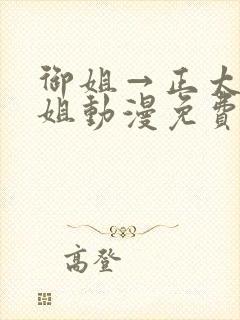 御姐→正太
姐動漫免費
高登